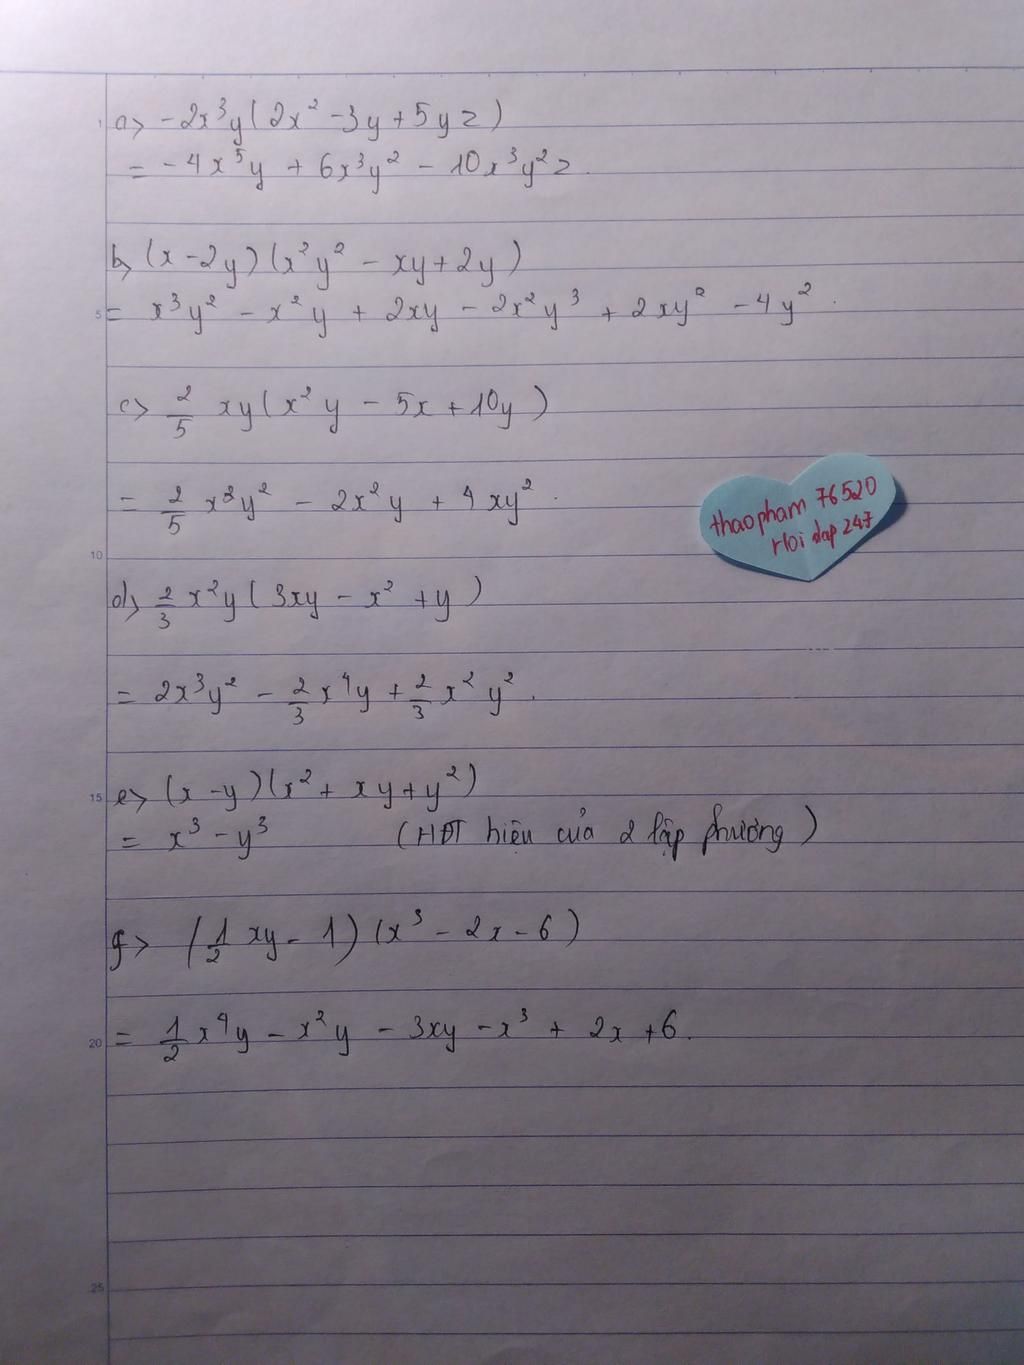 a> -2x³y(2x² -3y+5yz)
= -4x⁵y + 6x³y² - 10x³y²z.
b> (x-2y)(x²y² - xy+2y)
5
= x³y² - x²y + 2xy - 2x²y³ + 2xy² - 4y².
c> 2/5 xy(x²y - 5x+10y)
= 2/5 x³y² - 2x²y + 4xy².
thaopham 76520
Hoi dap 247
10
d> 2/3 x²y(3xy - x² +y)
= 2x³y² - 2/3 x⁴y + 2/3 x²y².
15
e> (x-y)(x² + xy+y²)
= x³ - y³ (HĐT hiệu của 2 lập phương)
g> (1/2 xy - 1)(x³ - 2x - 6)
20
= 1/2 x⁴y - x²y - 3xy - x³ + 2x +6.
25